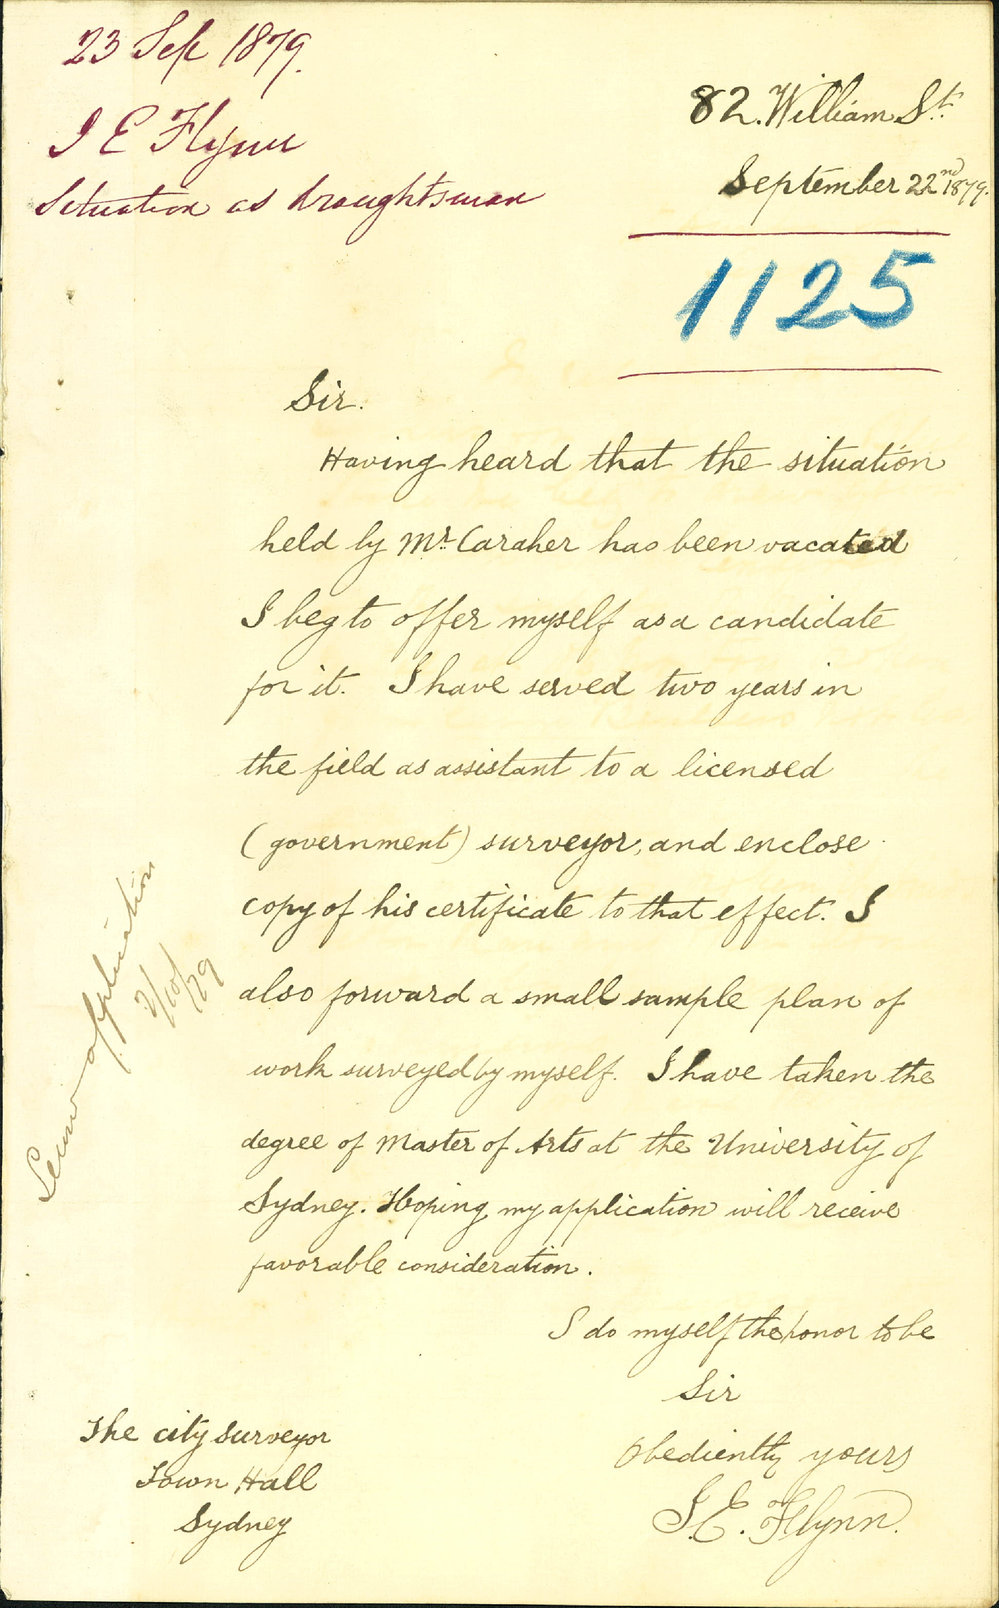 23 Sep 1879.
J E Flynn
Situation as draughtsman
82. William St.
September 22nd 1879.
1125
Sir.
Having heard that the situation
held by Mr. Caraher has been vacated
I beg to offer myself as a candidate
for it. I have served two years in
the field as assistant to a licensed
(government) surveyor, and enclose
copy of his certificate to that effect. I
also forward a small sample plan of
work surveyed by myself. I have taken the
degree of Master of Arts at the University of
Sydney. Hoping my application will receive
favorable consideration.
I do myself the honor to be
Sir
Obediently yours
J. E. Flynn.
The city Surveyor
Town Hall
Sydney
application
2/10/79